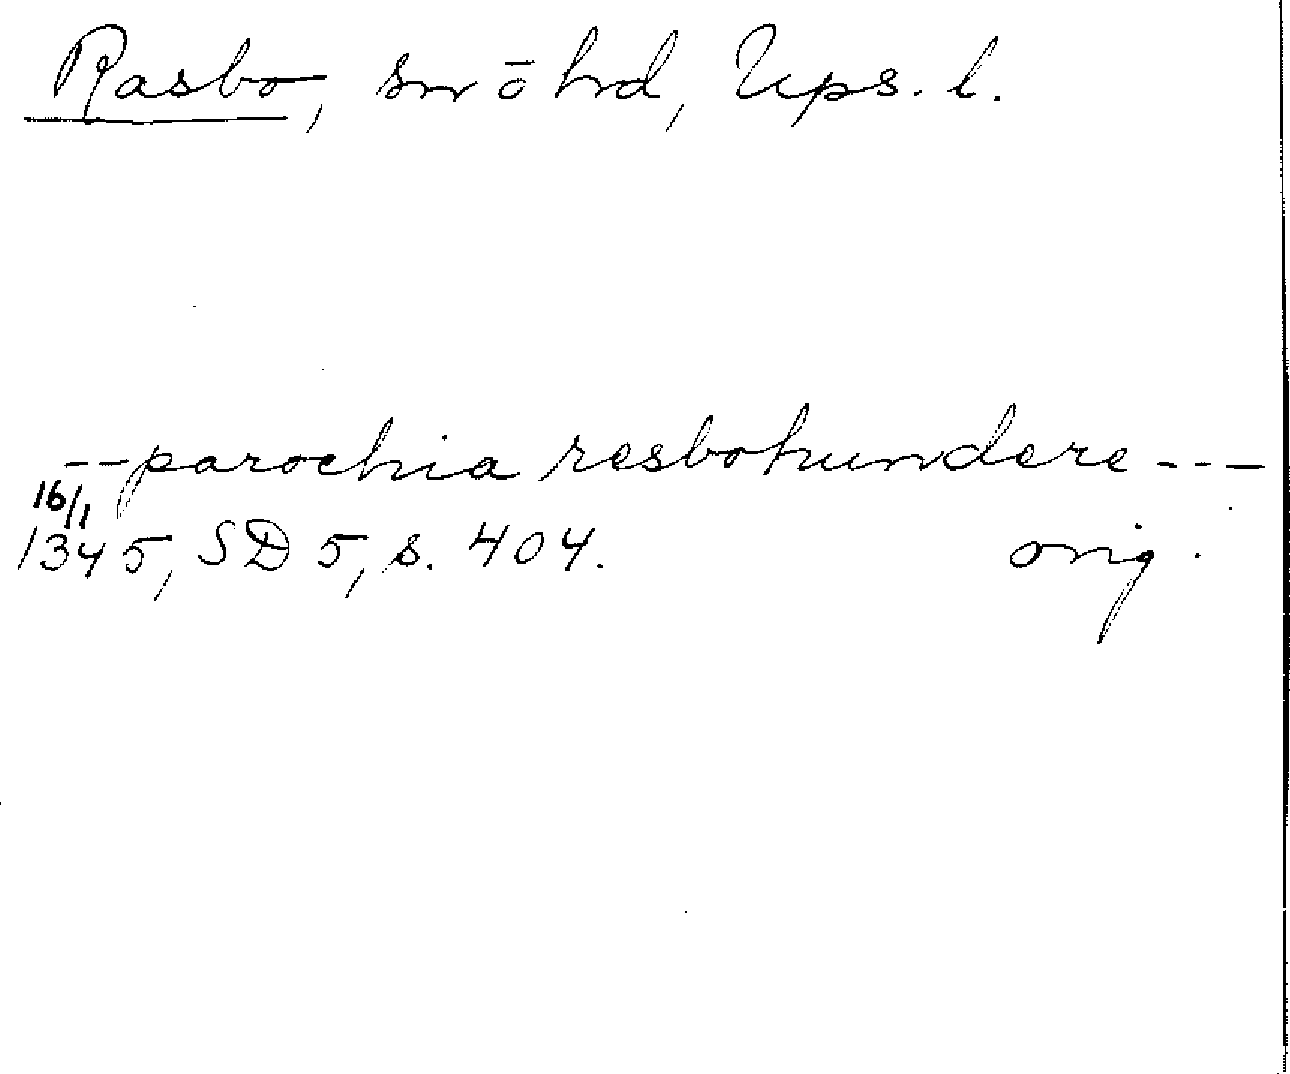 Rasbo, sn ō hd, Ups. l.
--parochia resbohundere---
16/1
1345, SD 5, s. 404. orig.